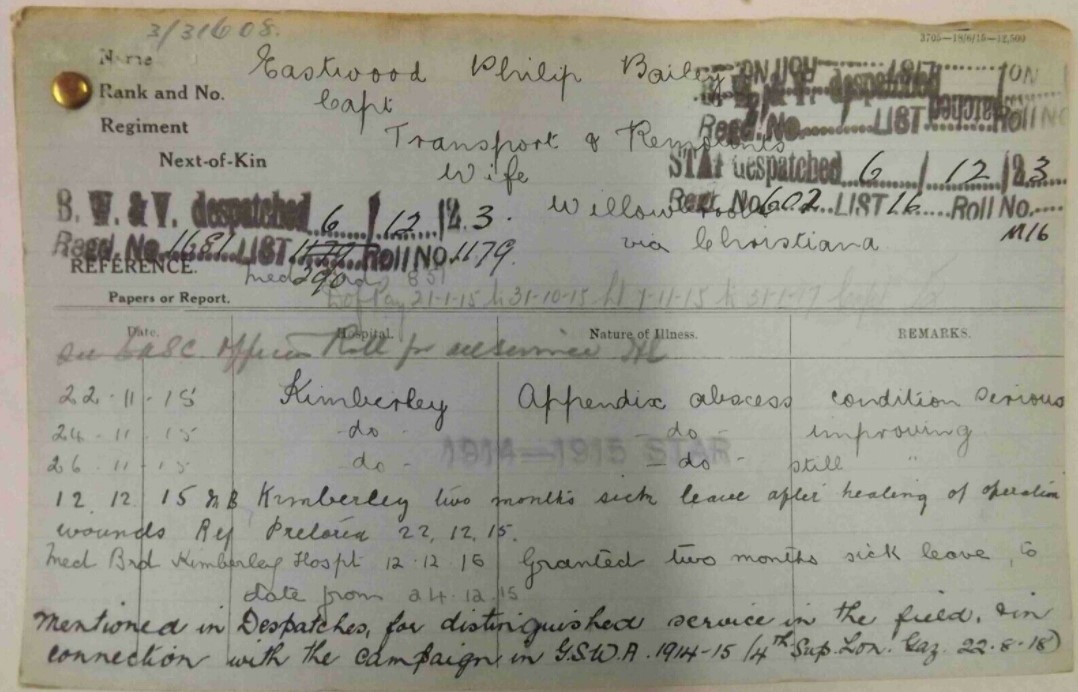 3/31608.
3705—18/6/15—12,500
Name Eastwood Philip Bailey
Rank and No. Capt
Regiment Transport & Remounts
despatched
Regd. No. LIST Roll No
Next-of-Kin Wife
STAR despatched 6/12/23
B. W. & V. despatched 6/12/23.
Regtl. No 602 LIST 16 Roll No. M16
Regd. No. 1681 LIST 1179 Roll No. 1179.
via Christiana
REFERENCE. 290
Papers or Report. 21-1-15 to 31-10-15 7-11-15 to 31-1-17 Capt
Date. Hospital. Nature of Illness. REMARKS.
Officers Roll for
22-11-15 Kimberley Appendix abscess condition serious
24.11.15 -do- -do- improving
1914—1915 STAR
26.11.15 -do- -do- still "
12.12.15 M B Kimberley two months sick leave after healing of operation
wounds Pretoria 22.12.15.
Med Brd Kimberley Hospt 12.12.15 Granted two months sick leave, to
date from 24.12.15
Mentioned in Despatches, for distinguished service in the field, & in
connection with the campaign in G.S.W.A. 1914-15 (4th Sup. Lon. Gaz. 22-8-18)